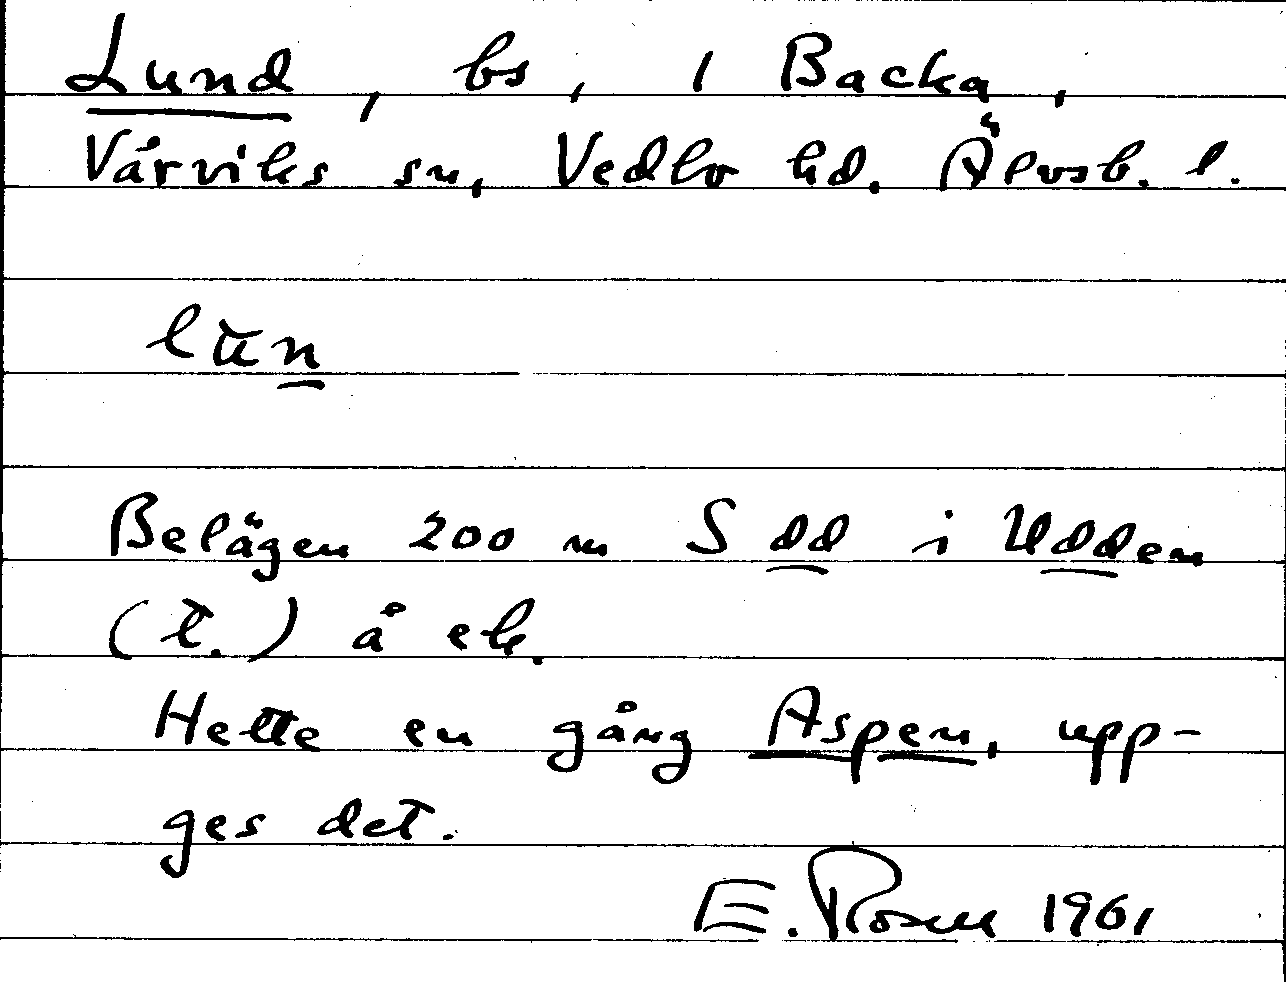 Lund, bs, 1 Backa,
Vårviks sn, Vedbo hd. Älvsb. l.
lun
Belägen 200 m S dd i Udden
(t.) å ek.
Hette en gång Aspen, upp-
ges det.
E. Rosell 1961